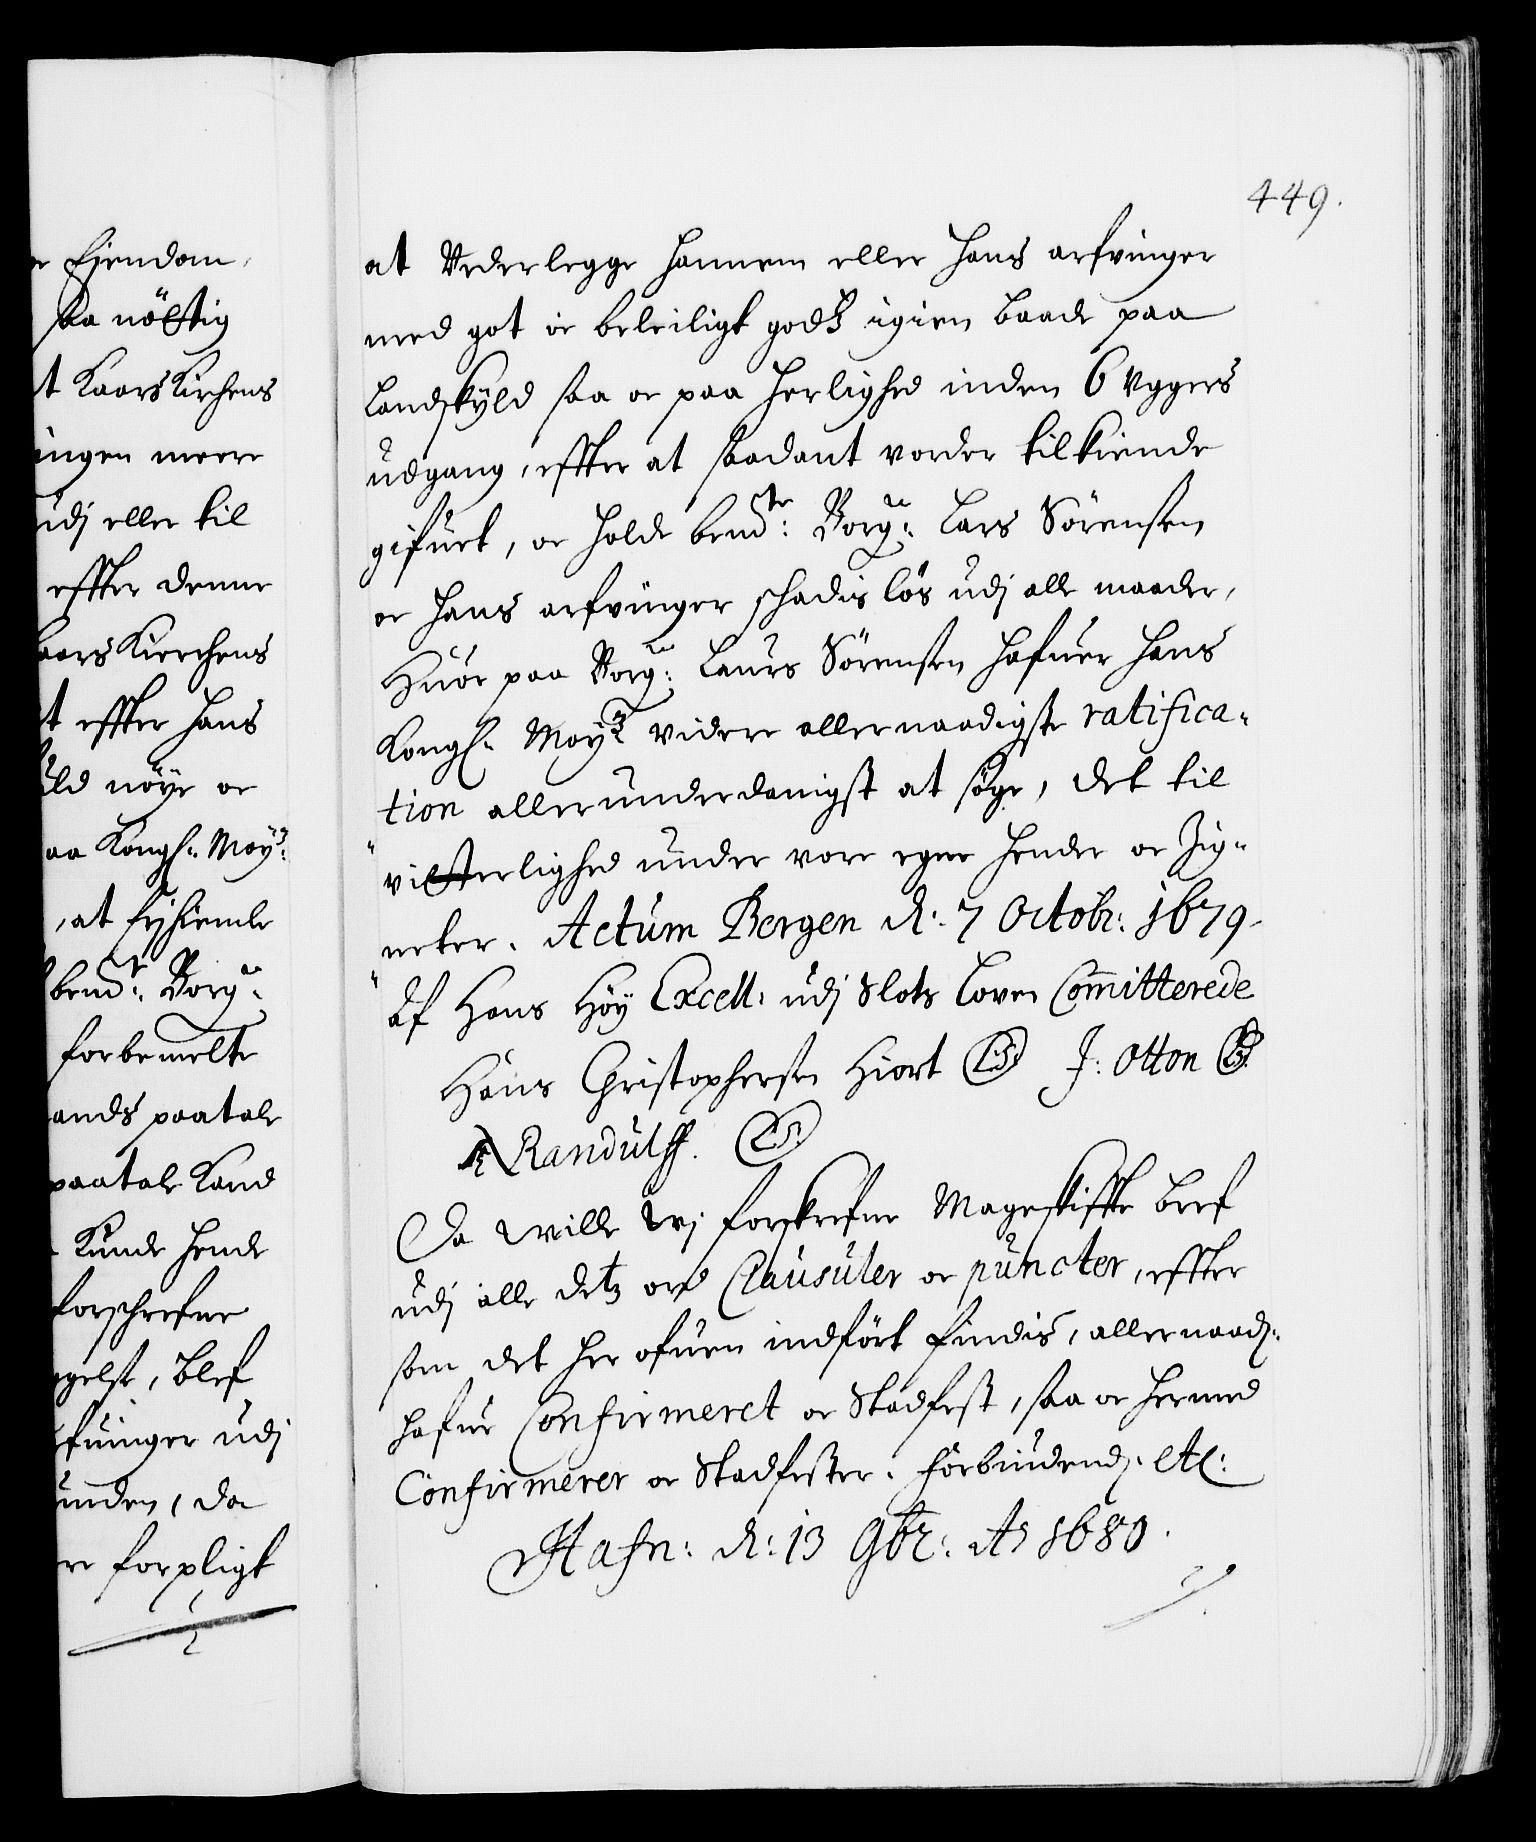 449.
e Eiendom,
saa nöttig
t Kaars Kirchens
ingen meere
udj eller til
effter denne
Kaars Kierchens
t effter Hans
uld nöÿe oc
aa Kongl: Maÿ:
, at Eÿhiemle
bemdte: Borg:
forbemelte
ands paatale
paatale Kand
Kunde hende
forschrefne
gelse, blef
fvinger udj
unden, da
re forpligt
at Vederlegge hannem eller hans arfvinger
med got oc beleiligt godtz igien baade paa
Landskÿld saa oc paa herlighed inden 6 Uggers
udgang, effter at saadant vorder tilkiende
gifuet, oc holde bemdte: Borg: Lars Sörensen
oc hans arfvinger schadislös udj alle maader,
Huor paa Borg: Laurs Sörensen hafuer Hans
Kongl: Maÿtz videre allernaadigste ratifica-
tion allerunderdanigst at söge, det til
vitterlighed under vore egne hender oc Zig-
neter. Actum Bergen d: 7 Octobr: 1679.
Af Hans Höÿ Excell: udj Slots Loven Committerede
Hans Christophersen Hiort (LS) J: Otton (LS)
Randulff. (LS)
Da Wille Wj forskrefne Mageskiffte bref
udj alle detz ord Clausuler oc puncter, effter
som det her ofuen indfört findis, allernaad:
hafue Confirmeret oc Stadfest, saa oc hermed
Confirmerer oc Stadfester. Forbiudend: etc:
Hafn: d: 13 9br: Ao 1680.